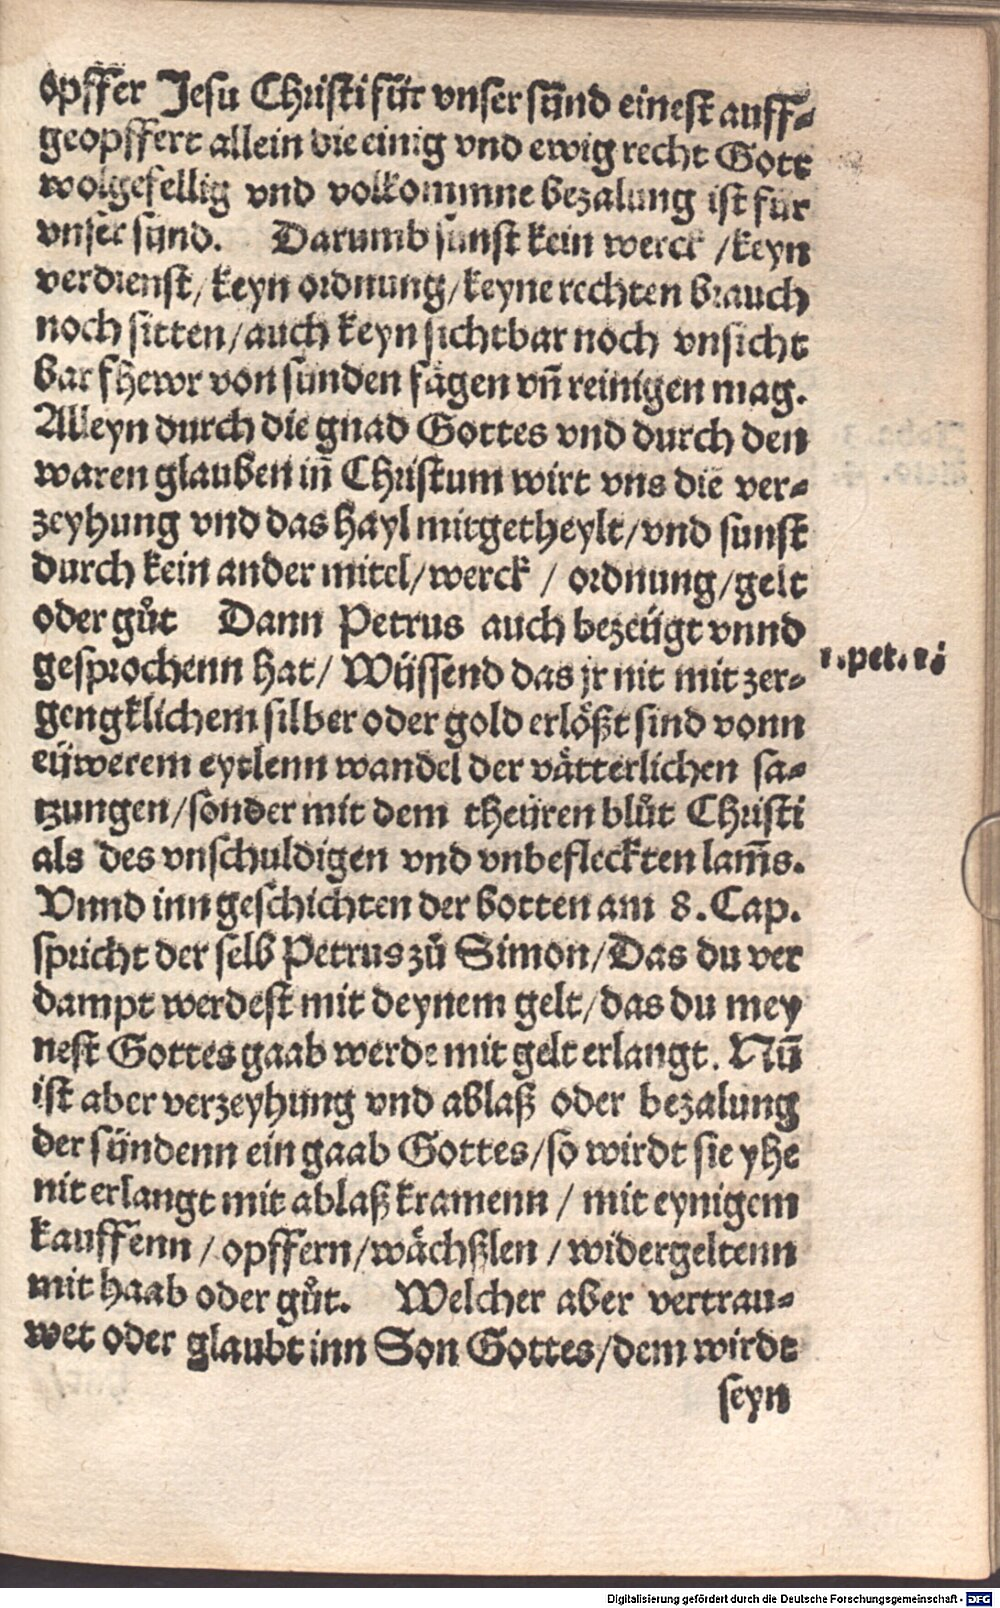 opffer Jesu Christi für vnser sünd einest auff-
geopffert allein die einig vnd ewig recht Gott
wolgefellig vnd volkommne bezalung ist für
vnser sünd. Darumb sunst kein werck /keyn
verdienst/keyn ordnung/keyne rechten brauch
noch sitten/auch keyn sichtbar noch vnsicht
bar fhewr von sünden fägen vñ reinigen mag.
Alleyn durch die gnad Gottes vnd durch den
waren glauben iñ Christum wirt vns die ver-
zeyhung vnd das hayl mitgetheylt/vnd sunst
durch kein ander mitel/werck / ordnung/gelt
oder gůt Dann Petrus auch bezeügt vnnd
gesprochenn hat/ Wüssend das jr nit mit zer-
gengklichem silber oder gold erlößt sind vonn
eüwerem eytlenn wandel der vätterlichen sa-
tzungen/sonder mit dem theüren blůt Christi
als des vnschuldigen vnd vnbefleckten lam̃s.
Vnnd inn geschichten der botten am 8. Cap.
spricht der selb Petrus zů Simon/Das du ver
dampt werdest mit deynem gelt/das du mey
nest Gottes gaab werde mit gelt erlangt. Nũ
ist aber verzeyhung vnd ablaß oder bezalung
der sündenn ein gaab Gottes/so wirdt sie yhe
nit erlangt mit ablaß kramenn / mit eynigem
kauffenn / opffern/wächßlen / widergeltenn
mit haab oder gůt. Welcher aber vertrau-
wet oder glaubt inn Son Gottes/dem wirdt
seyn
1.pet. 1;
Digitalisierung gefördert durch die Deutsche Forschungsgemeinschaft - DFG